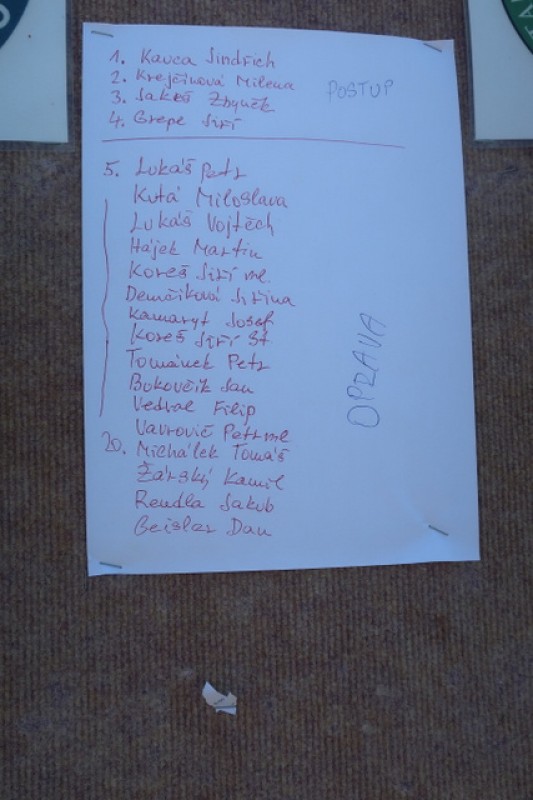 1. Kavca Jindřich
2. Krejčinová Milena
3. Jakeš Zbyněk
4. Grepl Jiří
POSTUP
5. Lukáš Petr
Kutá Miloslava
Lukáš Vojtěch
Hájek Martin
Koreš Jiří ml.
Demčíková Jiřina
Kamaryt Josef
Koreš Jiří St
Tománek Petr
Bukovčik Jan
Vedral Filip
Vavrovič Petr ml
20. Michálek Tomáš
Žárský Kamil
Rendla Jakub
Geislar Dan
OPRAVA